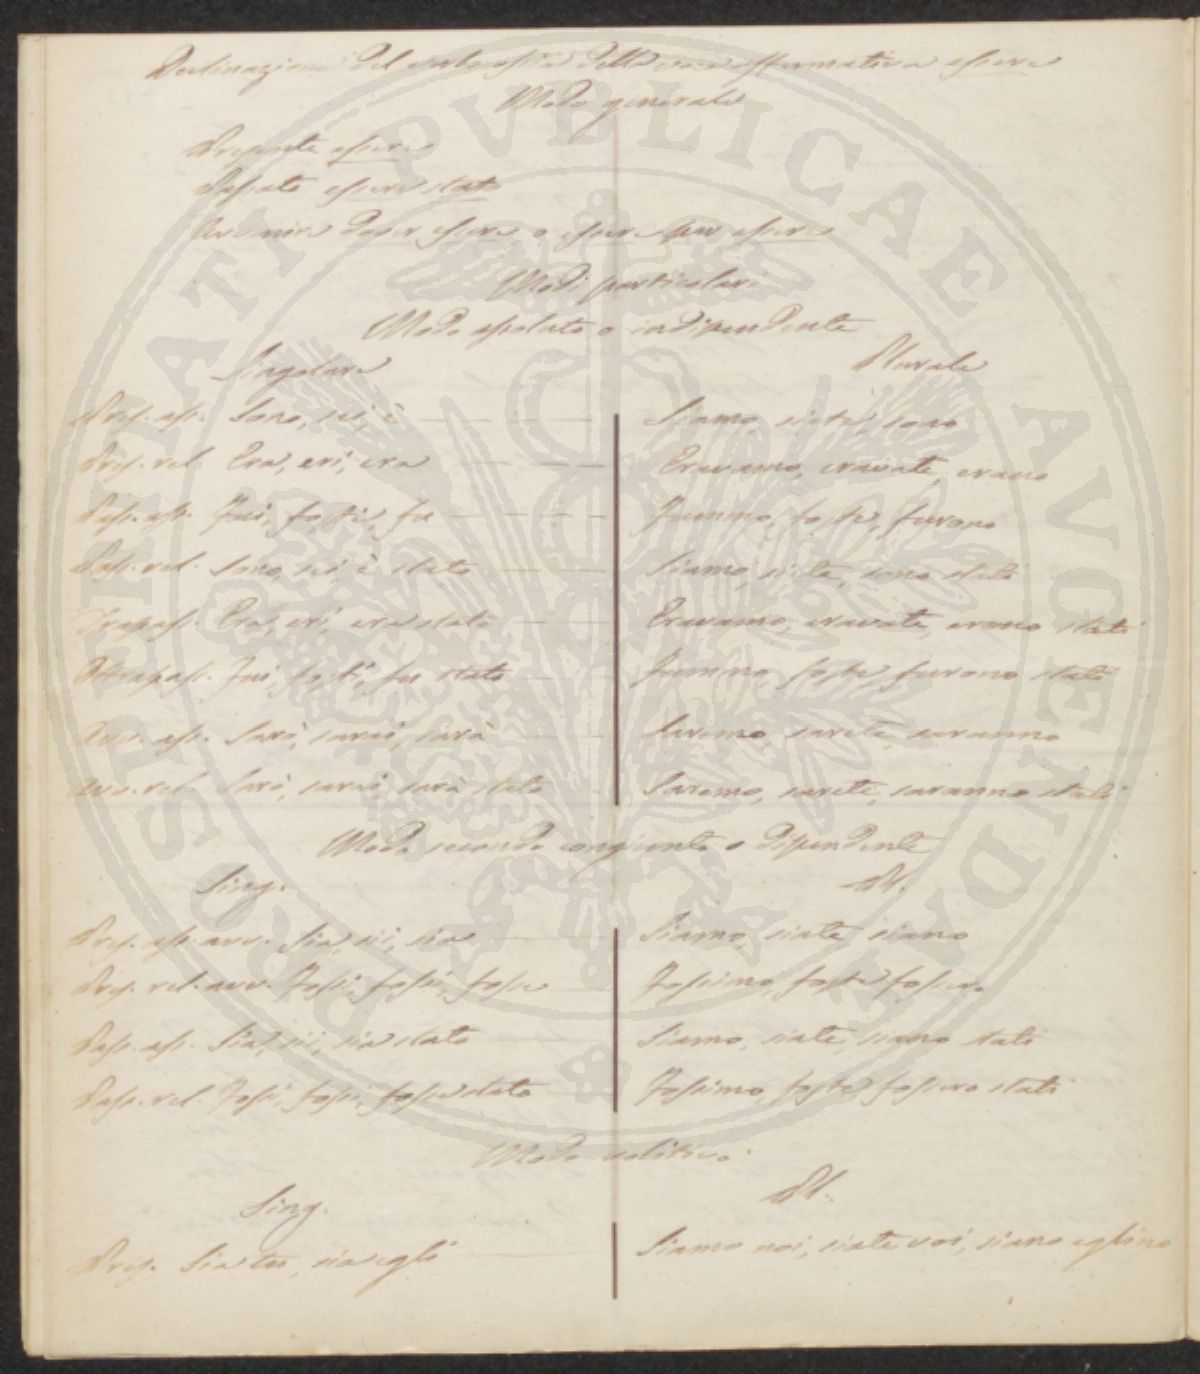 Declinazione del verbo ossia della voce affermativa essere
Modo generale
Presente essere
Passato essere stato
Avvenire dover essere o essere per essere
Modi particolari
Modo assoluto o indipendente
Singolare Plurale
Pres. ass. Sono, sei, è Siamo, siete, sono
Pres. rel. Era, eri, era Eravamo, eravate, erano
Pass. ass. Fui, fosti, fu Fummo, foste, furono
Pass. rel. Sono, sei, è stato Siamo, siete, sono stati
Trapass. Era, eri, era stato Eravamo, eravate, erano stati
Oltrapass. Fui, fosti, fu stato Fummo, foste, furono stati
Avv. ass. Sarò, sarai, sarà Saremo, sarete, saranno
Avv. rel. Sarò, sarai, sarà stato Saremo, sarete, saranno stati
Modo secondo congiunto o dipendente
Sing. Pl.
Pres. ass. avv. Sia, sii, sia Siamo, siate, siano
Pres. rel. avv. Fossi, fossi, fosse Fossimo, foste, fossero
Pass. ass. Sia, sii, sia stato Siamo, siate, siano stati
Pass. rel. Fossi, fossi, fosse stato Fossimo, foste, fossero stati
Modo volitivo
Sing. Pl.
Pres. Sia tu, sia egli Siamo noi, siate voi, siano eglino
PROSPERITATI PVBLICAE AVGENDAE